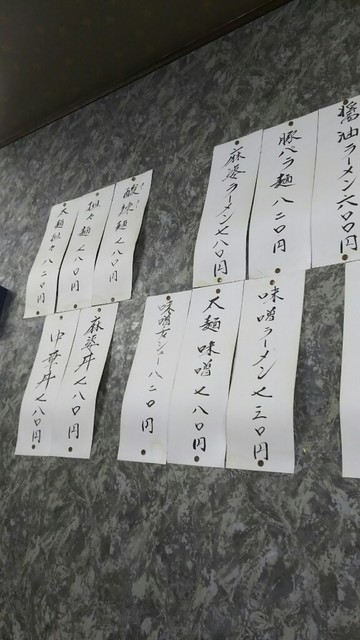 醤油ラーメン六〇〇円
豚バラ麺八二〇円
麻婆ラーメン七八〇円
酸辣麺七八〇円
担々麺七八〇円
大麺担々八二〇円
味噌ラーメン七三〇円
大麺味噌七八〇円
味噌チャシュー八二〇円
麻婆丼七八〇円
中華丼七八〇円